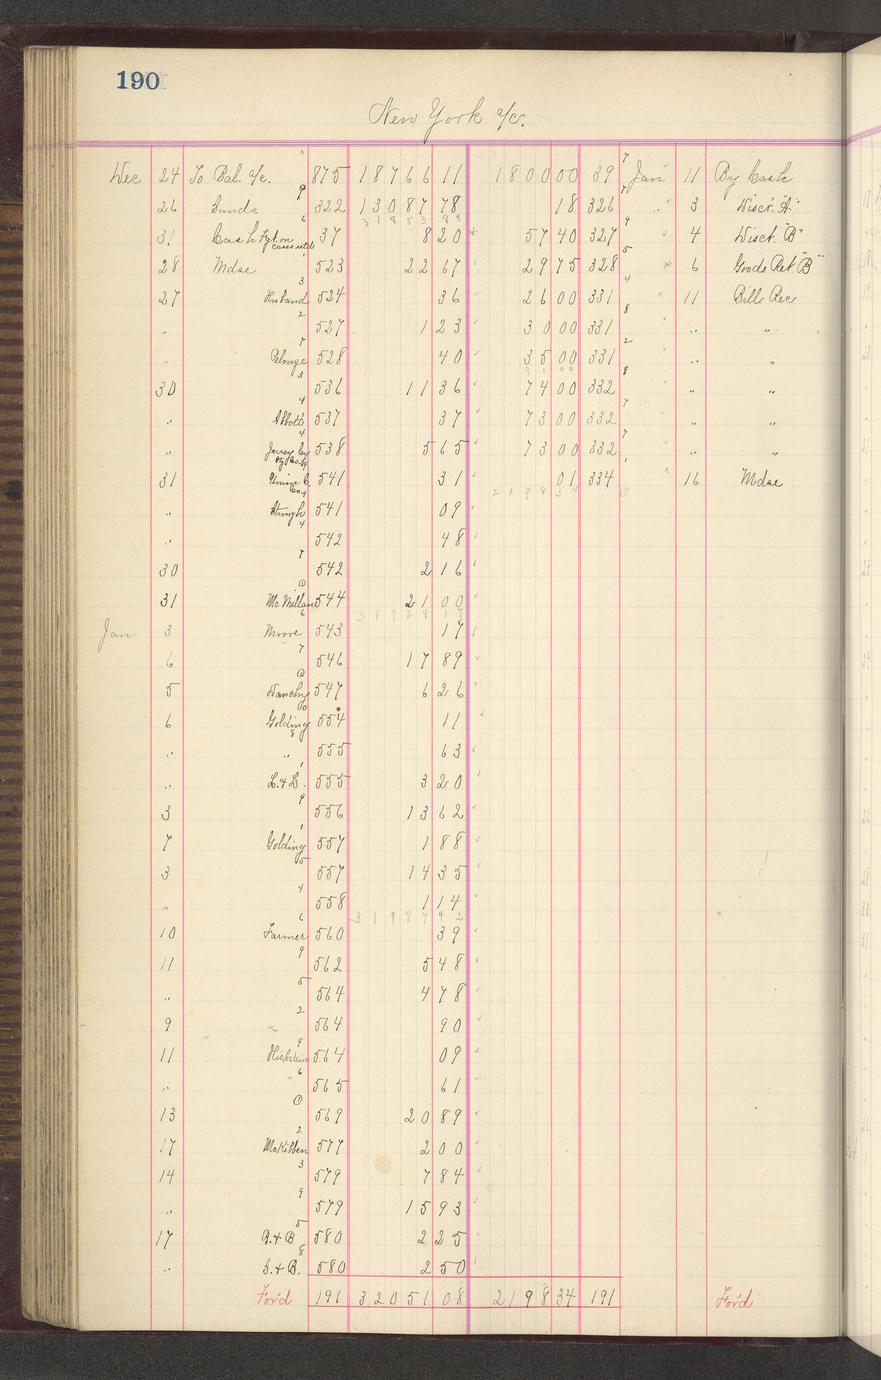 190
New York a/c.
Dec 24 To Bal. a/c. 875 18766 11 1800 00 39 Jan 11 By Cash
26 Sunds 322 13087 78 18 326 " 3 Disct. "A"
31 85 3 89
31 Cash Fgt. on cases retd 37 8 20 57 40 327 4 Disct "B"
28 Mdse 523 22 67 29 75 328 6 Goods Ret "B"
27 Husband 524 36 26 00 331 11 Bills Rec
" 527 1 23 30 00 331 " "
" 528 40 35 00 331 " "
30 536 11 36 74 00 332 " "
" Abbott 537 37 73 00 332 " "
" Jersey City 538 5 65 73 00 332 " "
31 Union C. 541 31 01 334 16 Mdse
2198 34
" 541 09
" 542 48
30 542 2 16
31 McMillan 544 21 00
Jan 3 Moore 543 17
6 546 17 89
5 547 6 26
6 Golding 554 11
" " 555 63
" L. & L. 555 3 20
3 556 13 62
7 Golding 557 1 88
3 557 14 35
" 558 1 14
31987 92
10 Farmer 560 39
11 562 5 48
" 564 4 78
9 564 90
11 564 09
" 565 61
13 569 20 89
17 McKibben 577 2 00
14 579 7 84
" 579 15 93
17 B. & B 580 2 25
" S. & B. 580 2 50
For'd 191 32051 08 2198 34 191 For'd